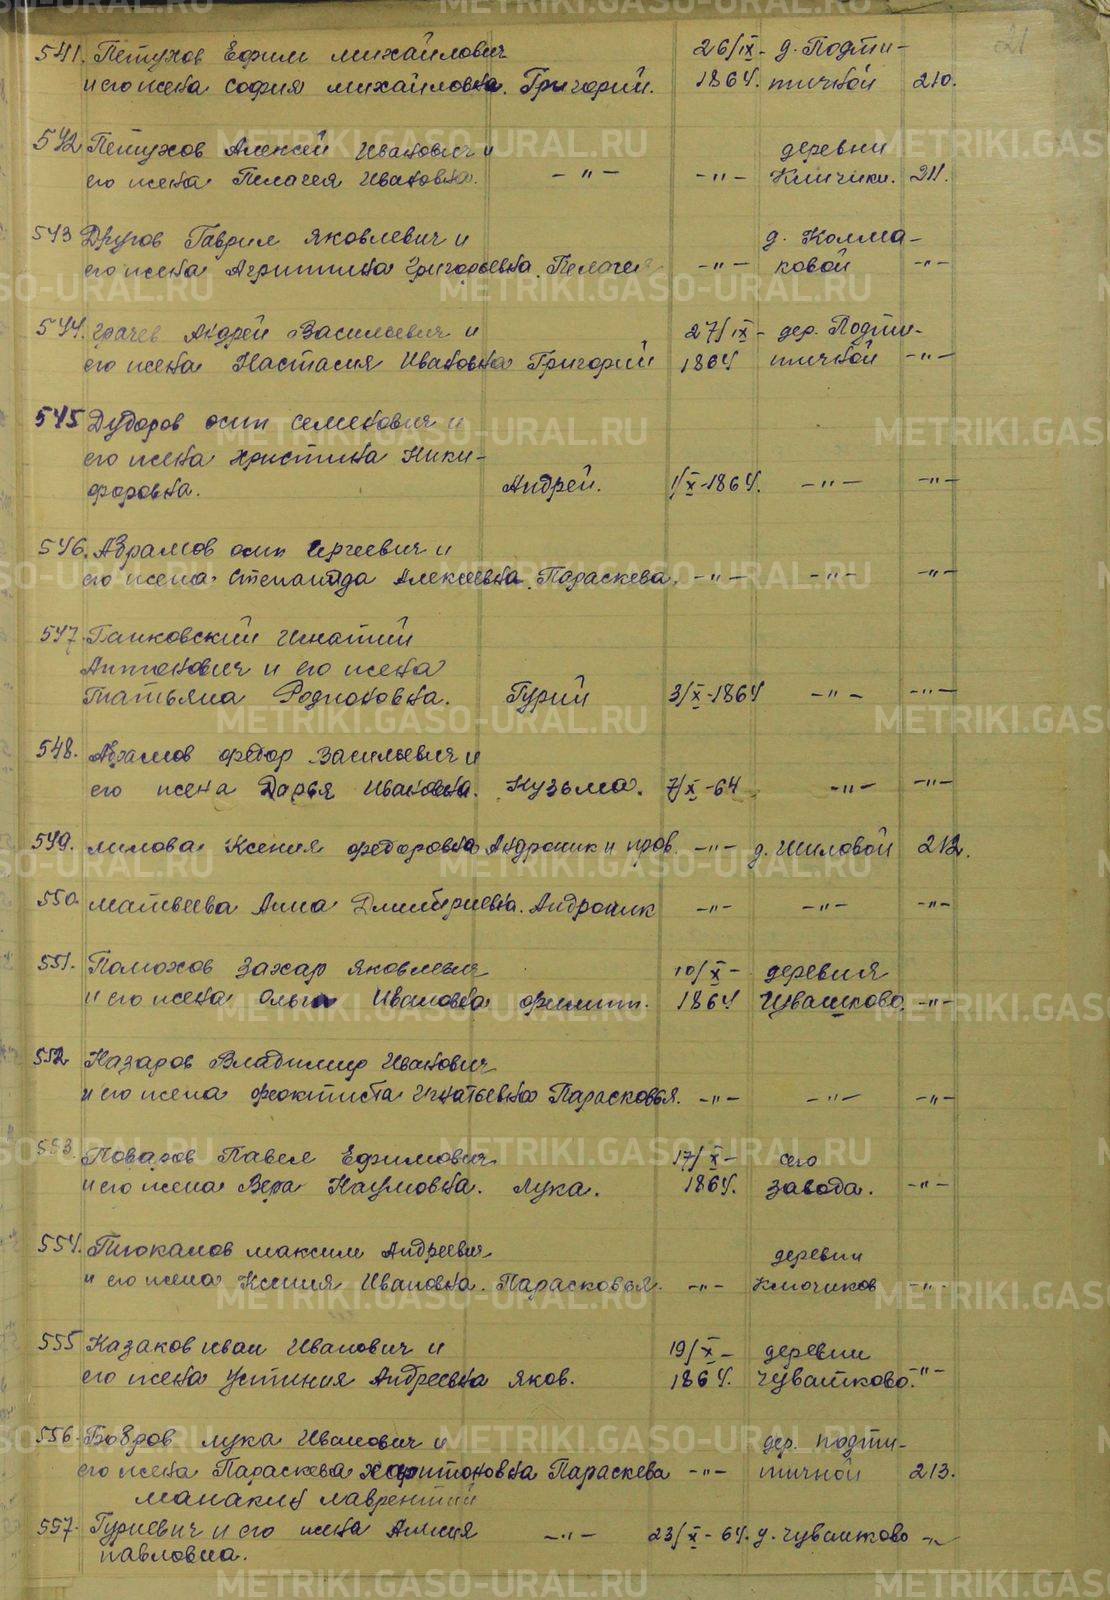 21
541. Петухов Ефим Михайлович 26/IX- д. Подти-
и его жена София Михайловна. Григорий. 1864. тичной 210.
542 Петухов Алексей Иванович и деревни
его жена Пелагея Ивановна. -"- -"- Ключики. 211.
543 Другов Гаврил Яковлевич и д. Колма-
его жена Агриппина Григорьевна. Пелагея -"- ковой -"-
544. Грачев Андрей Васильевич и 27/IX- дер. Подти-
его жена Настасия Ивановна Григорий 1864 тичной -"-
545 Дудоров Осип Семенович и
его жена Христина Ники-
форовна. Андрей. 1/X-1864. -"- -"-
546. Абрамов Осип Сергеевич и
его жена Степанида Алексеевна. Параскева. -"- -"- -"-
547. Ганковский Игнатий
Антонович и его жена
Татьяна Родионовна. Гурий 3/X-1864 -"- -"-
548. Абрамов Федор Васильевич и
его жена Дарья Ивановна. Кузьма. 7/X-64 -"- -"-
549. Ксения Федоровна Андроник и пров. -"- д. Шиловой 212.
550. Матвеева Анна Дмитриевна. Андроник -"- -"- -"-
551. Поможов Захар Яковлевич 10/X- деревня
и его жена Ольга Ивановна Филипп. 1864 Чувашково. -"-
552 Назаров Владимир Иванович
и его жена Феоктиста Игнатьевна Парасковья. -"- -"- -"-
553. Поваров Павел Ефимович 17/X- сего
и его жена Вера Наумовна. Лука. 1864. завода. -"-
554. Пюканов Максим Андреевич деревни
и его жена Ксения Ивановна. Парасковья. -"- Ключиков -"-
555 Казаков Иван Иванович и 19/X- деревни
его жена Устиния Андреевна Яков. 1864. Чувашково. -"-
556. Бобров Лука Иванович и дер. Подти-
его жена Параскева Харитоновна Параскева -"- тичной 213.
Манакин Лаврентий
557. Гуриевич и его жена -"- 23/X-64. д. Чувашково -"-
Павловна.
METRIKI.GASO-URAL.RU